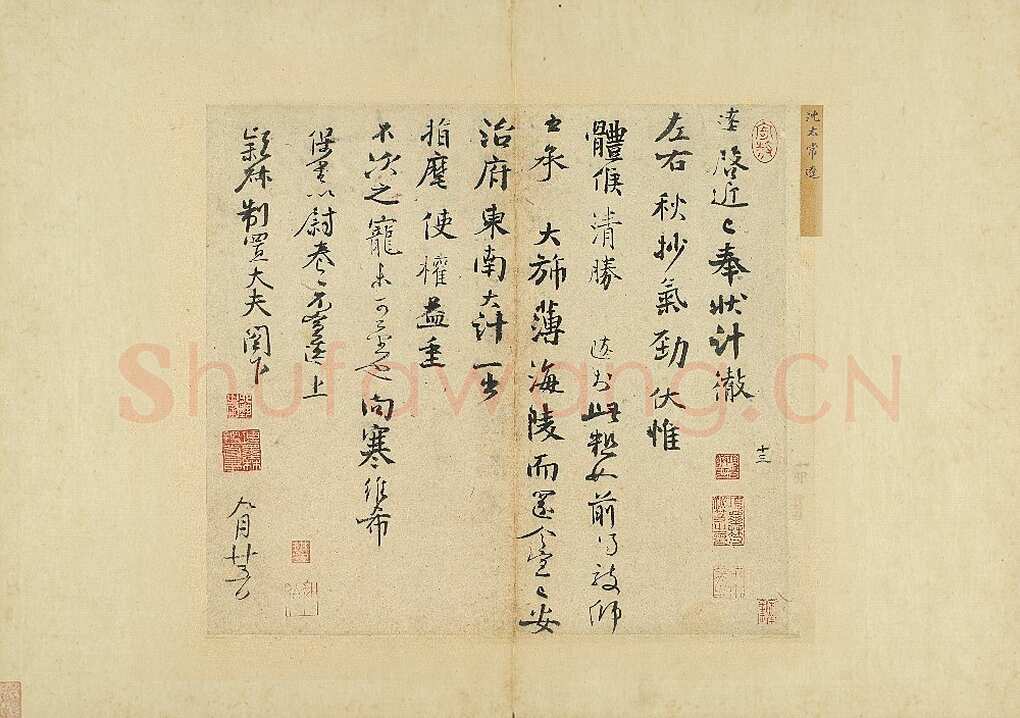 沈太常遼
遼啓近〻奉狀計徹
左右秋抄氣勁伏惟
體候清勝 遼於此粗如前得報師
云承 大旆薄海陵而還今宣〻安
治府東南大計一出
指麾使權益重
不次之寵未可量也向寒維希
保重以尉卷〻不宣遼上
制置大夫閤下
九月廿五日
十三
Shufawang.CN